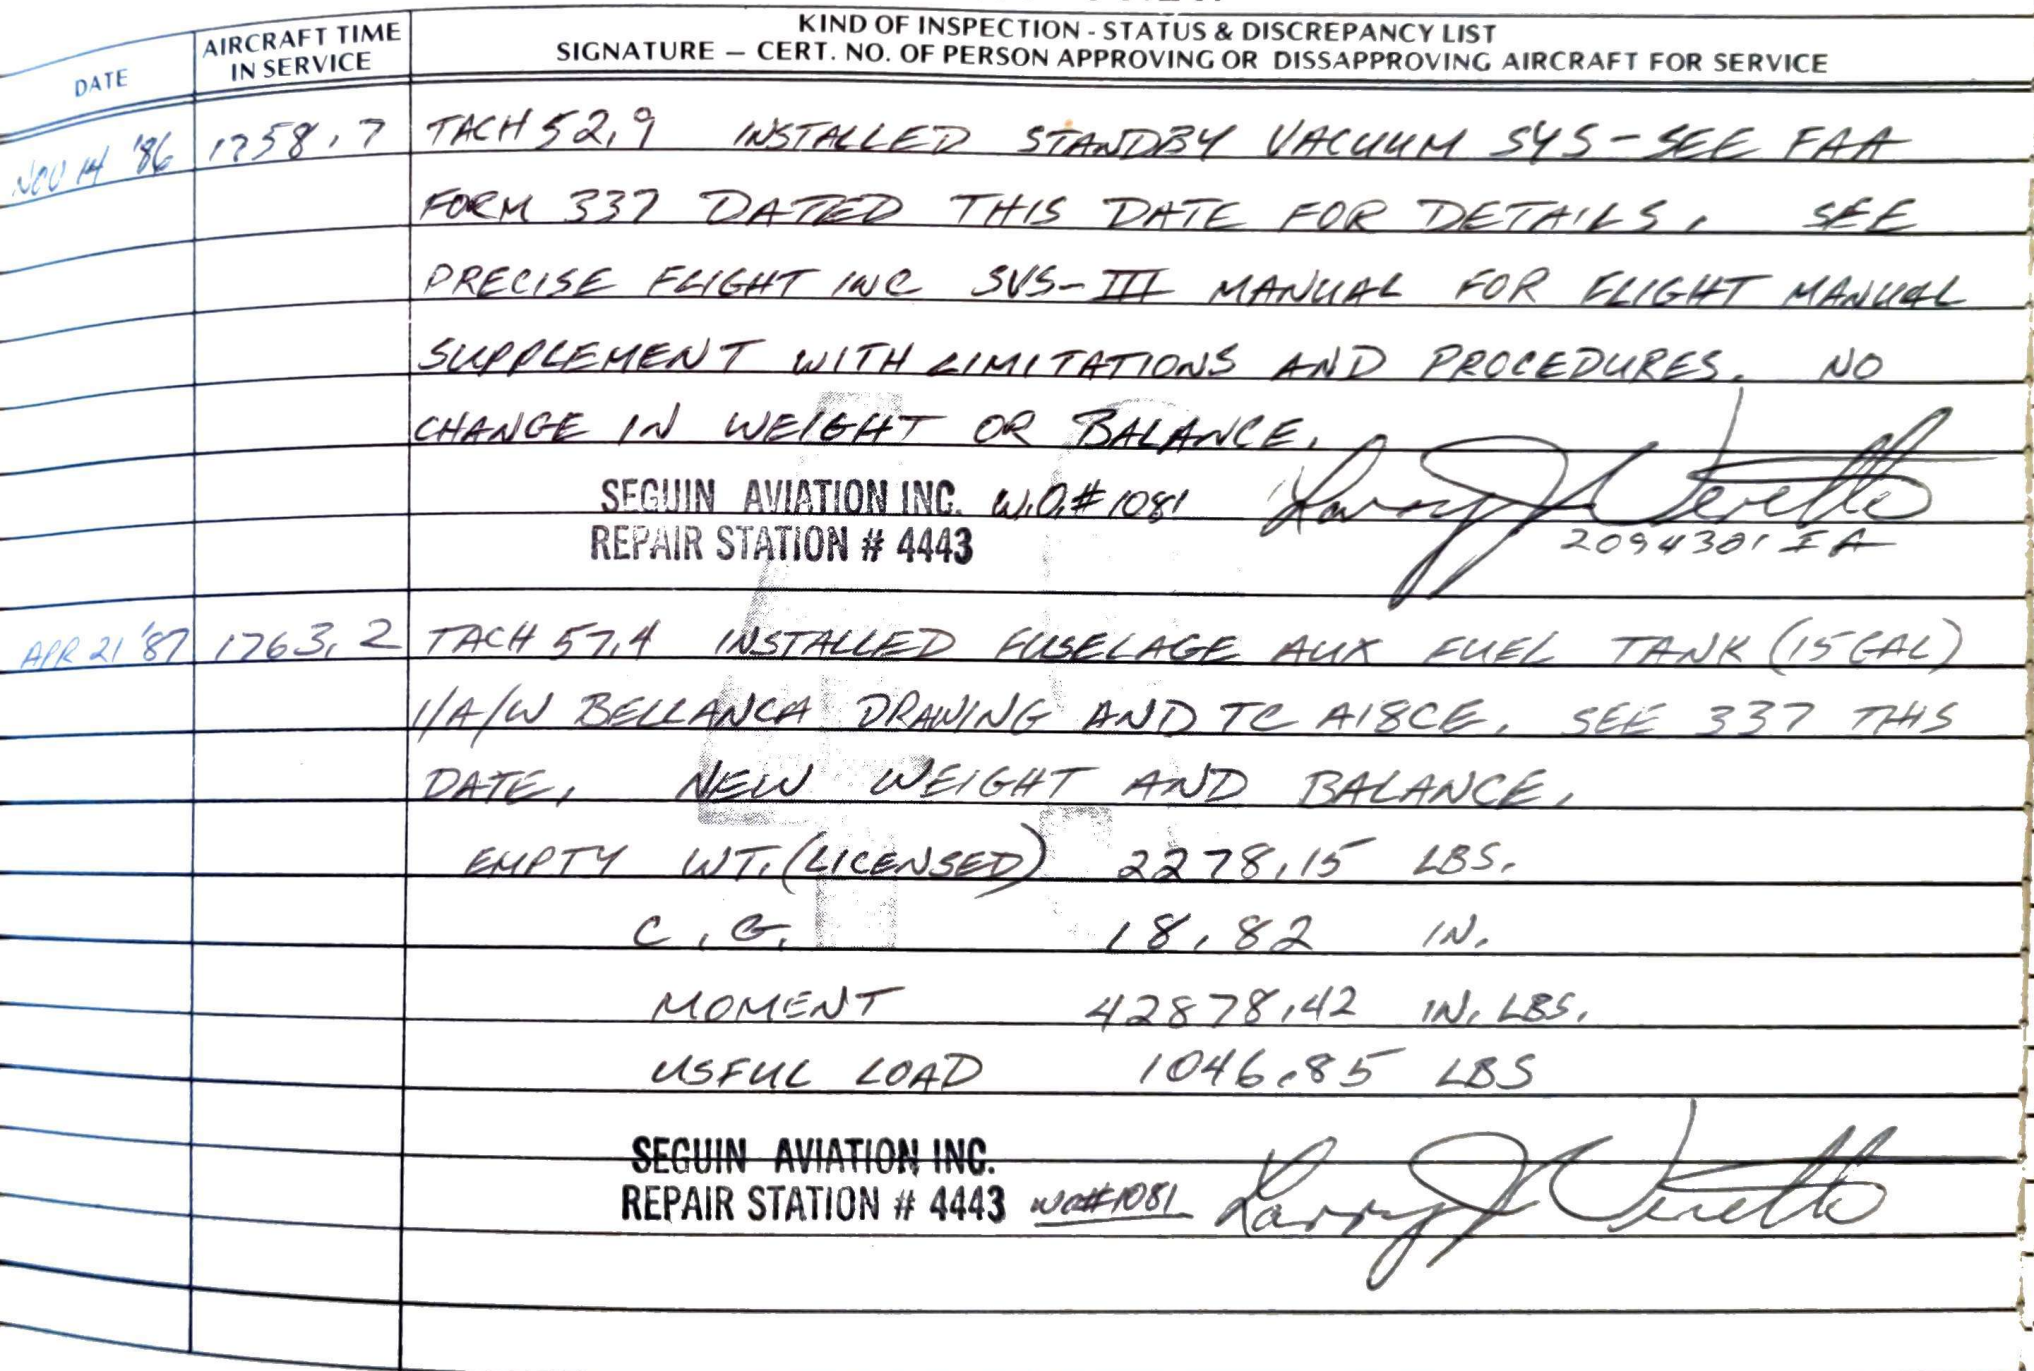 DATE
AIRCRAFT TIME
IN SERVICE
KIND OF INSPECTION - STATUS & DISCREPANCY LIST
SIGNATURE — CERT. NO. OF PERSON APPROVING OR DISSAPPROVING AIRCRAFT FOR SERVICE
NOV 14 '86 1758.7 TACH 52.9 INSTALLED STANDBY VACUUM SYS - SEE FAA
FORM 337 DATED THIS DATE FOR DETAILS. SEE
PRECISE FLIGHT INC SVS-III MANUAL FOR FLIGHT MANUAL
SUPPLEMENT WITH LIMITATIONS AND PROCEDURES. NO
CHANGE IN WEIGHT OR BALANCE.
SEGUIN AVIATION INC. W.O.# 1081 Larry J
REPAIR STATION # 4443 2094301 IA
APR 21 '87 1763.2 TACH 57.4 INSTALLED FUSELAGE AUX FUEL TANK (15 GAL)
I/A/W BELLANCA DRAWING AND TC A18CE. SEE 337 THIS
DATE. NEW WEIGHT AND BALANCE.
EMPTY WT. (LICENSED) 2278.15 LBS.
C.G. 18.82 IN.
MOMENT 42878.42 IN. LBS.
USFUL LOAD 1046.85 LBS
SEGUIN AVIATION INC.
REPAIR STATION # 4443 WO#1081 Larry J